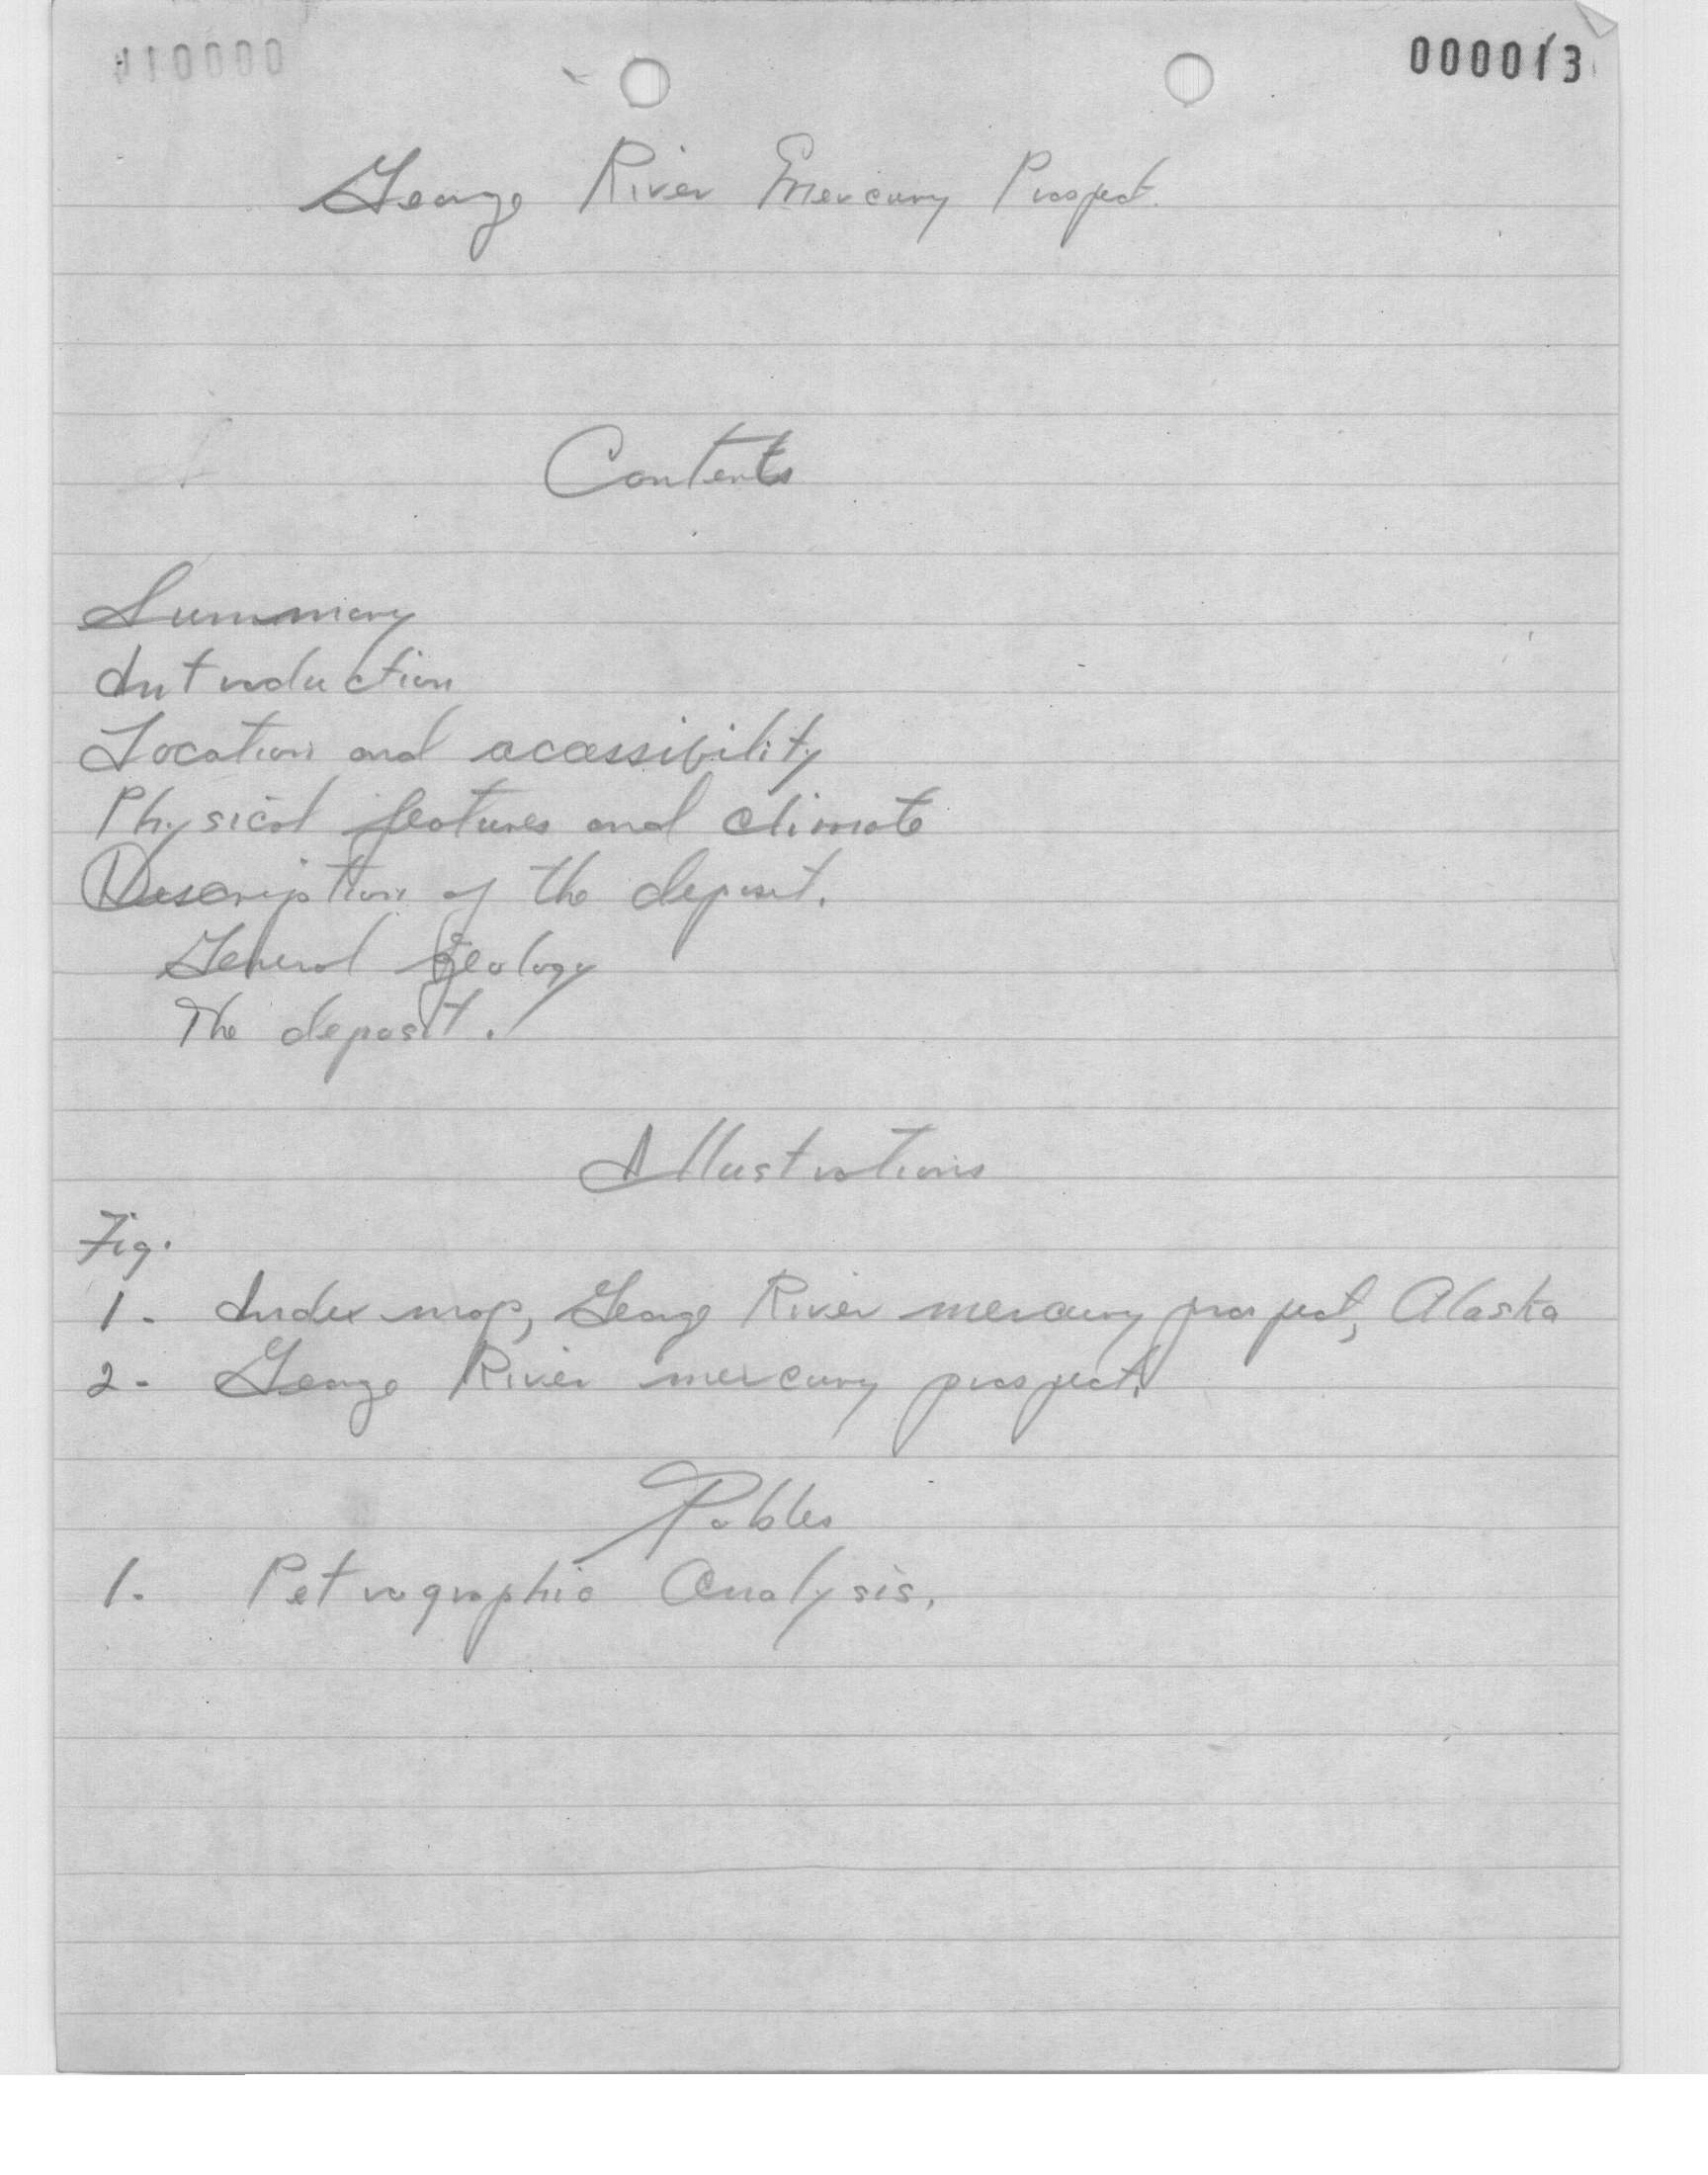 000013
George River Mercury Prospect.
Contents
Summary
Introduction
Location and acassibility
Physical features and climate
Description of the deposit.
General Geology
The deposit.
Illustrations
Fig.
1. Index map, George River mercury prospect, Alaska
2. George River mercury prospect.
Tables
1. Petrographic Analysis.